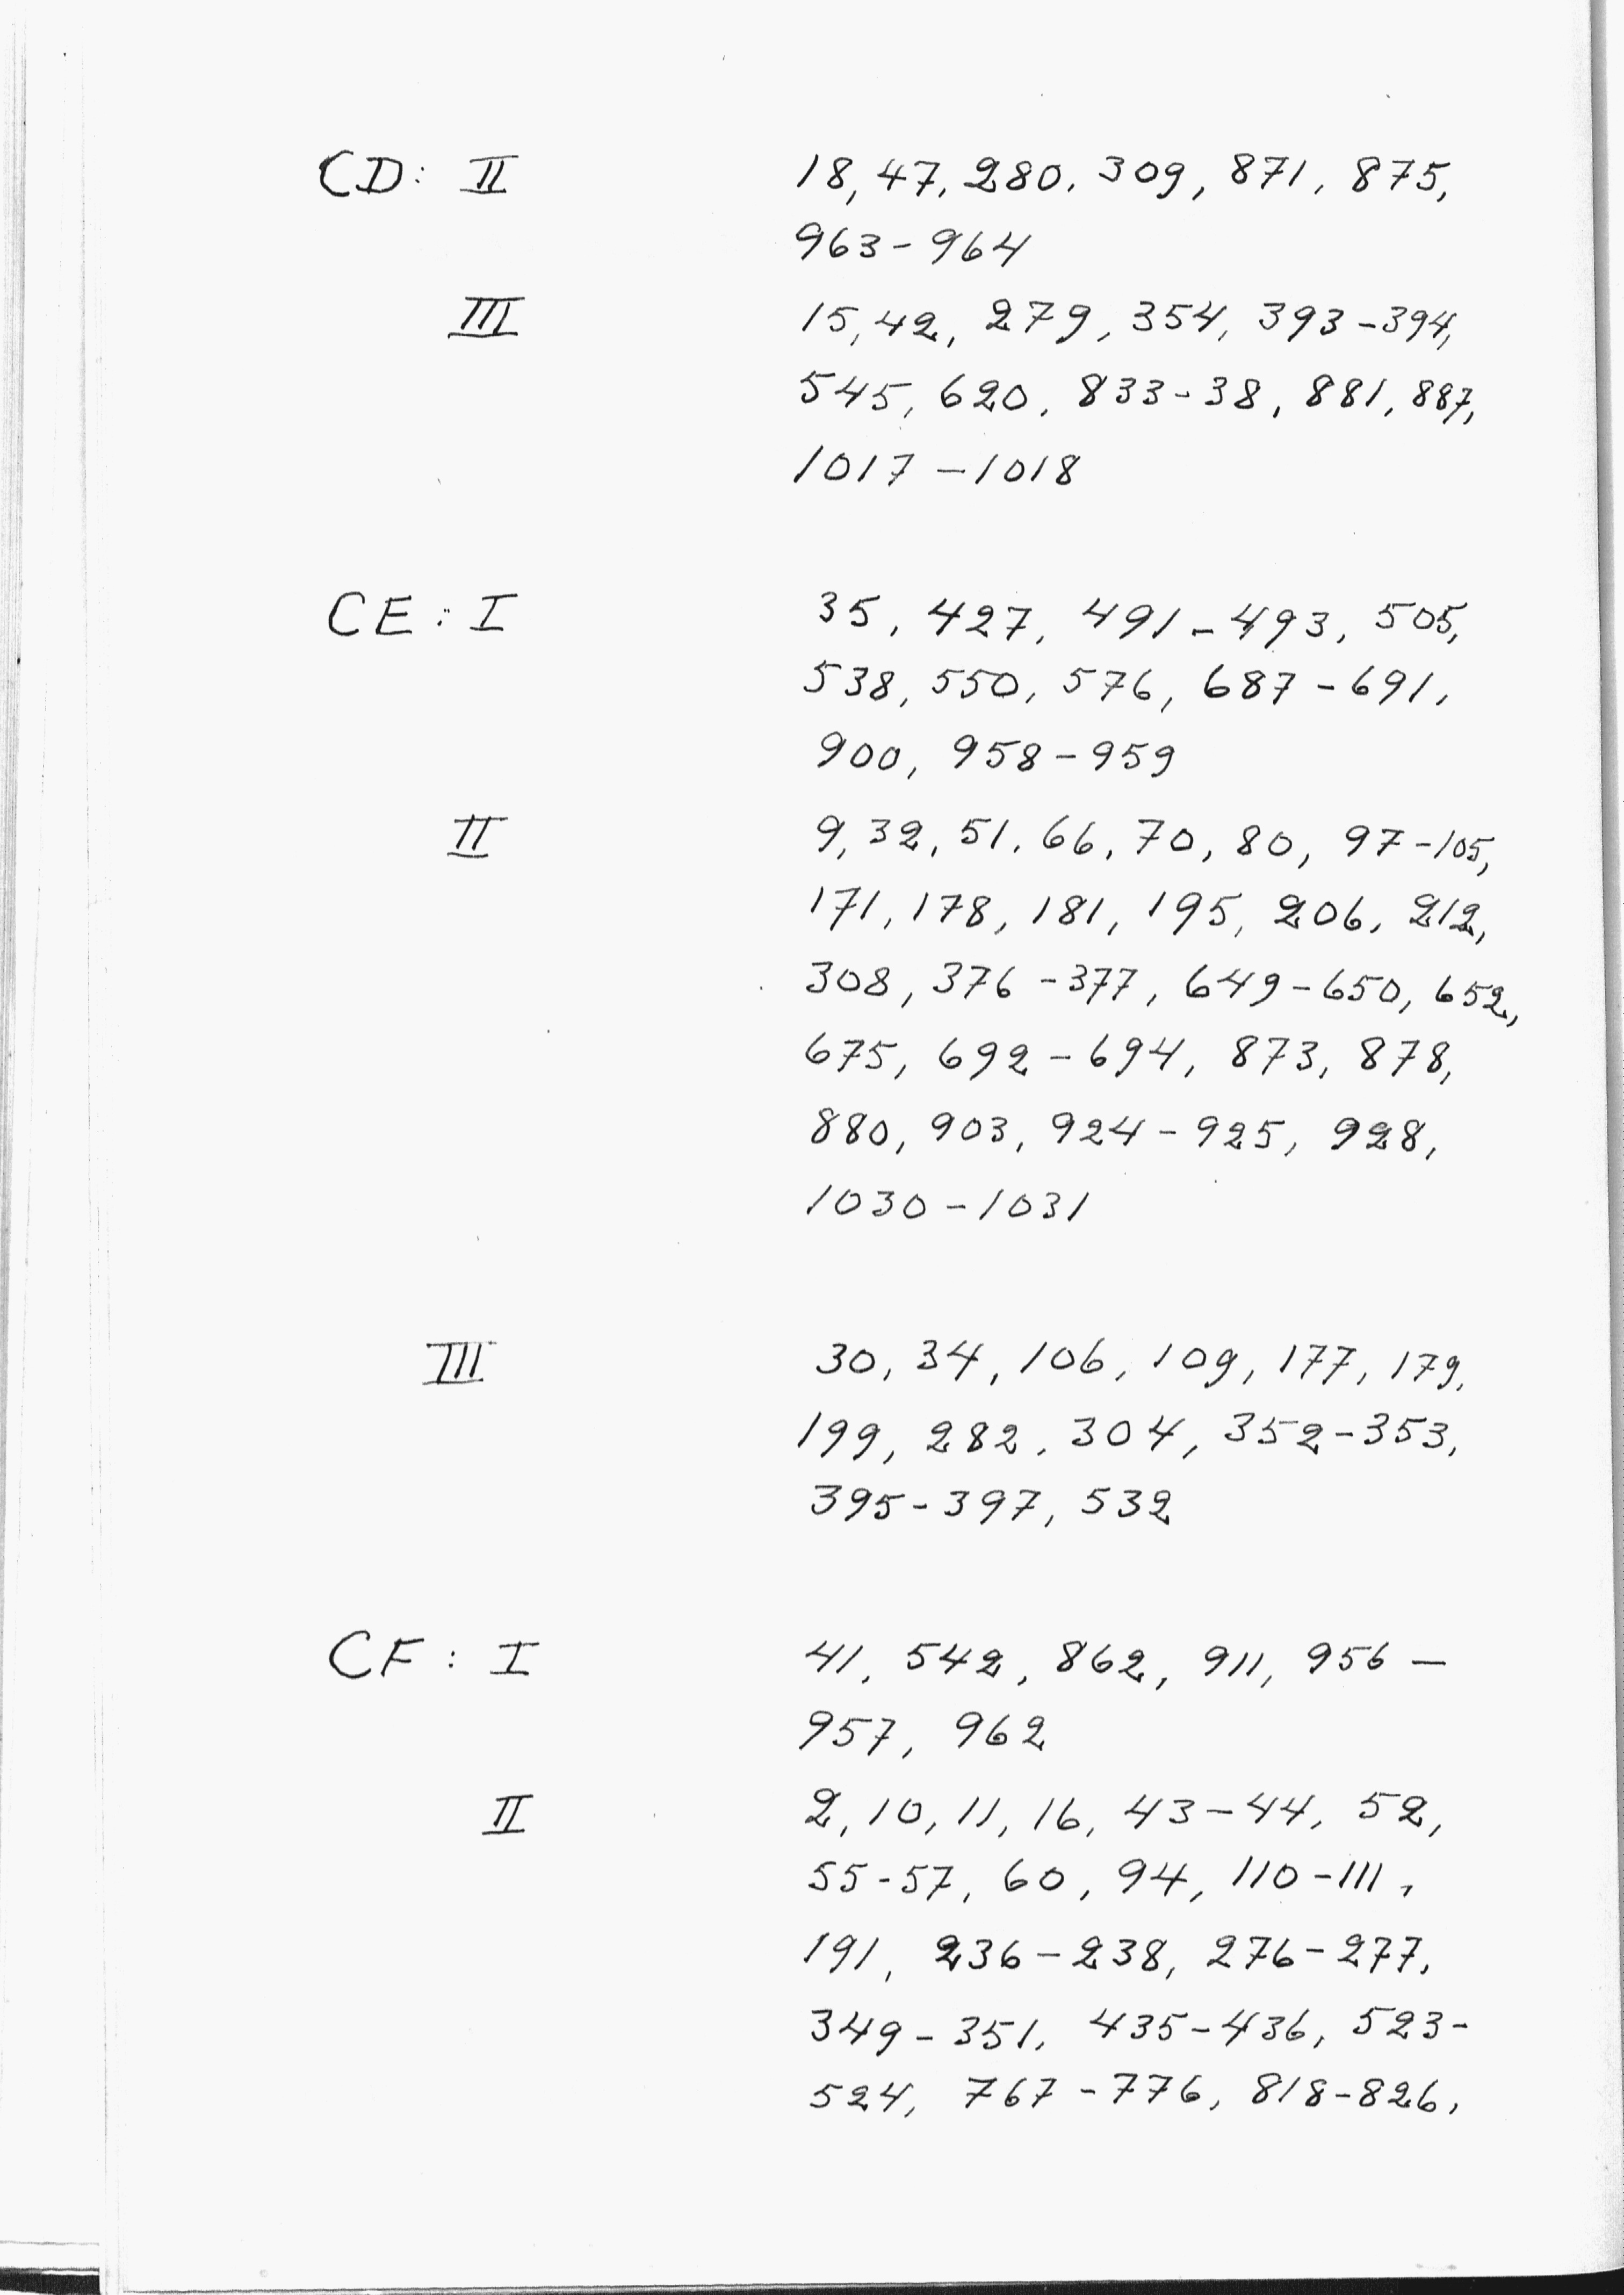 CD: II 18, 47, 280, 309, 871, 875,
963-964
III 15, 42, 279, 354, 393-394,
545, 620, 833-38, 881, 887,
1017-1018
CE: I 35, 427, 491-493, 505,
538, 550, 576, 687-691,
900, 958-959
II 9, 32, 51, 66, 70, 80, 97-105,
171, 178, 181, 195, 206, 212,
308, 376-377, 649-650, 652,
675, 692-694, 873, 878,
880, 903, 924-925, 928,
1030-1031
III 30, 34, 106, 109, 177, 179,
199, 282, 304, 352-353,
395-397, 532
CF: I 41, 542, 862, 911, 956-
957, 962
II 2, 10, 11, 16, 43-44, 52,
55-57, 60, 94, 110-111,
191, 236-238, 276-277,
349-351, 435-436, 523-
524, 767-776, 818-826,